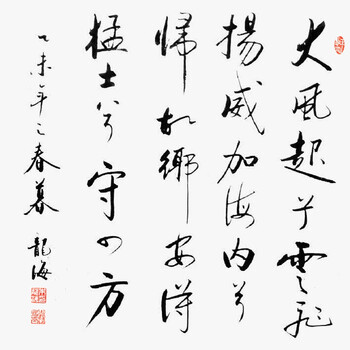 大風起兮雲飛
揚威加海内兮
歸故鄉安得
猛士兮守四方
乙未年之春暮 龍海